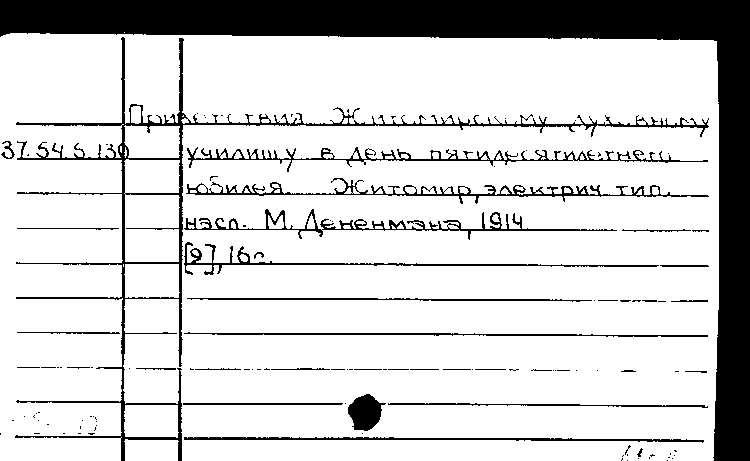 Приветствия Житомирскому духовному
37.54.5.130 училищу в день пятидесятилетнего
юбилея. Житомир, электрич. тип.
насл. М. Дененмана, 1914
[2], 16с.